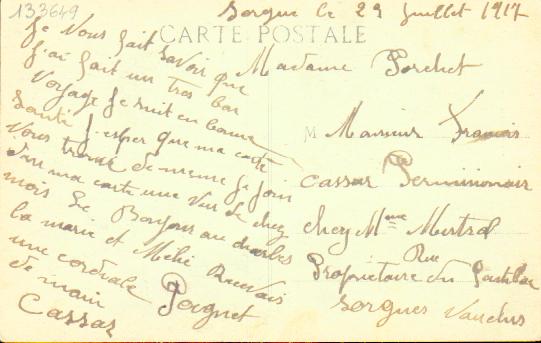 133649
Sorgue le 29 Juillet 1917
CARTE POSTALE
Je Vous fait Savoir que
J'ai fait un tres bon
Voyage Je suit en bonne
Santé J'esper que ma carte
Vous trouve de meme Je Join
dans ma carte une Vue de chez
mois Le Bonjour au charles
la marie et Mélie
une cordiale Poignet
de main
Cassar
Madame Porchet
M Monsieur Francis
Cassar Permissionair
chez Mme Mistral
Propriétaire Rue du
Sorgues Vauclus